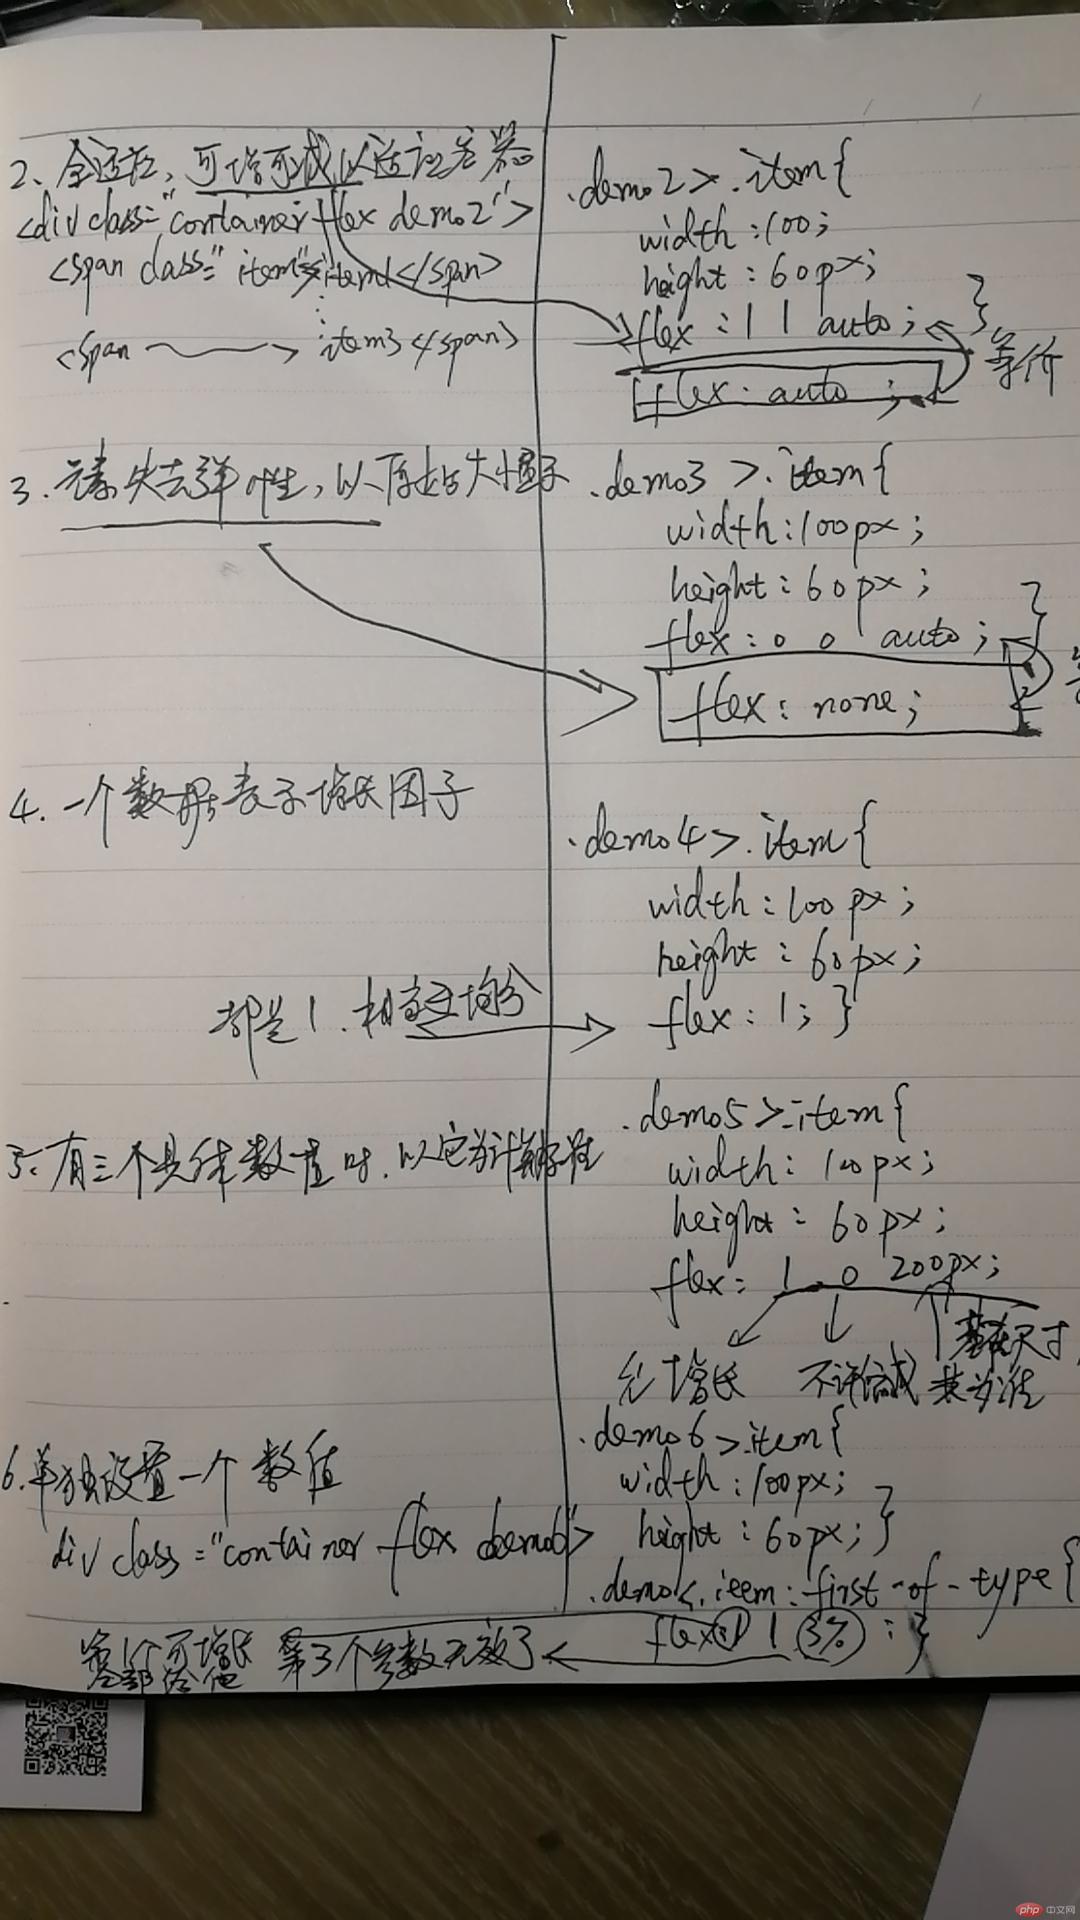 2、全适应,可增可减以适应容器
<div class="container flex demo2">
<span class="item">item1</span>
<span item3</span>
.demo2>.item{
width:100;
height:60px;
flex:1 1 auto; }
flex:auto;
等价
3.元素失去弹性,以原始大小显示
.demo3 >.item{
width:100px;
height:60px;
flex:0 0 auto; }
flex:none;
4.一个数据表示增长因子
都是1.相当于均分
.demo4>.item{
width:100px;
height:60px;
flex:1; }
5.有三个具体数值时.以它为计算标准
.demo5>.item{
width:100px;
height:60px;
flex: 1 0 200px;
允增长 不许缩减 基准尺寸
为准
6.单独设置一个数值
div class="container flex demo6">
.demo6>.item{
width:100px;
height:60px; }
.demo .item:first-of-type{
flex:1 1 3%; }
可增长 第3个参数无效了
php 中文网